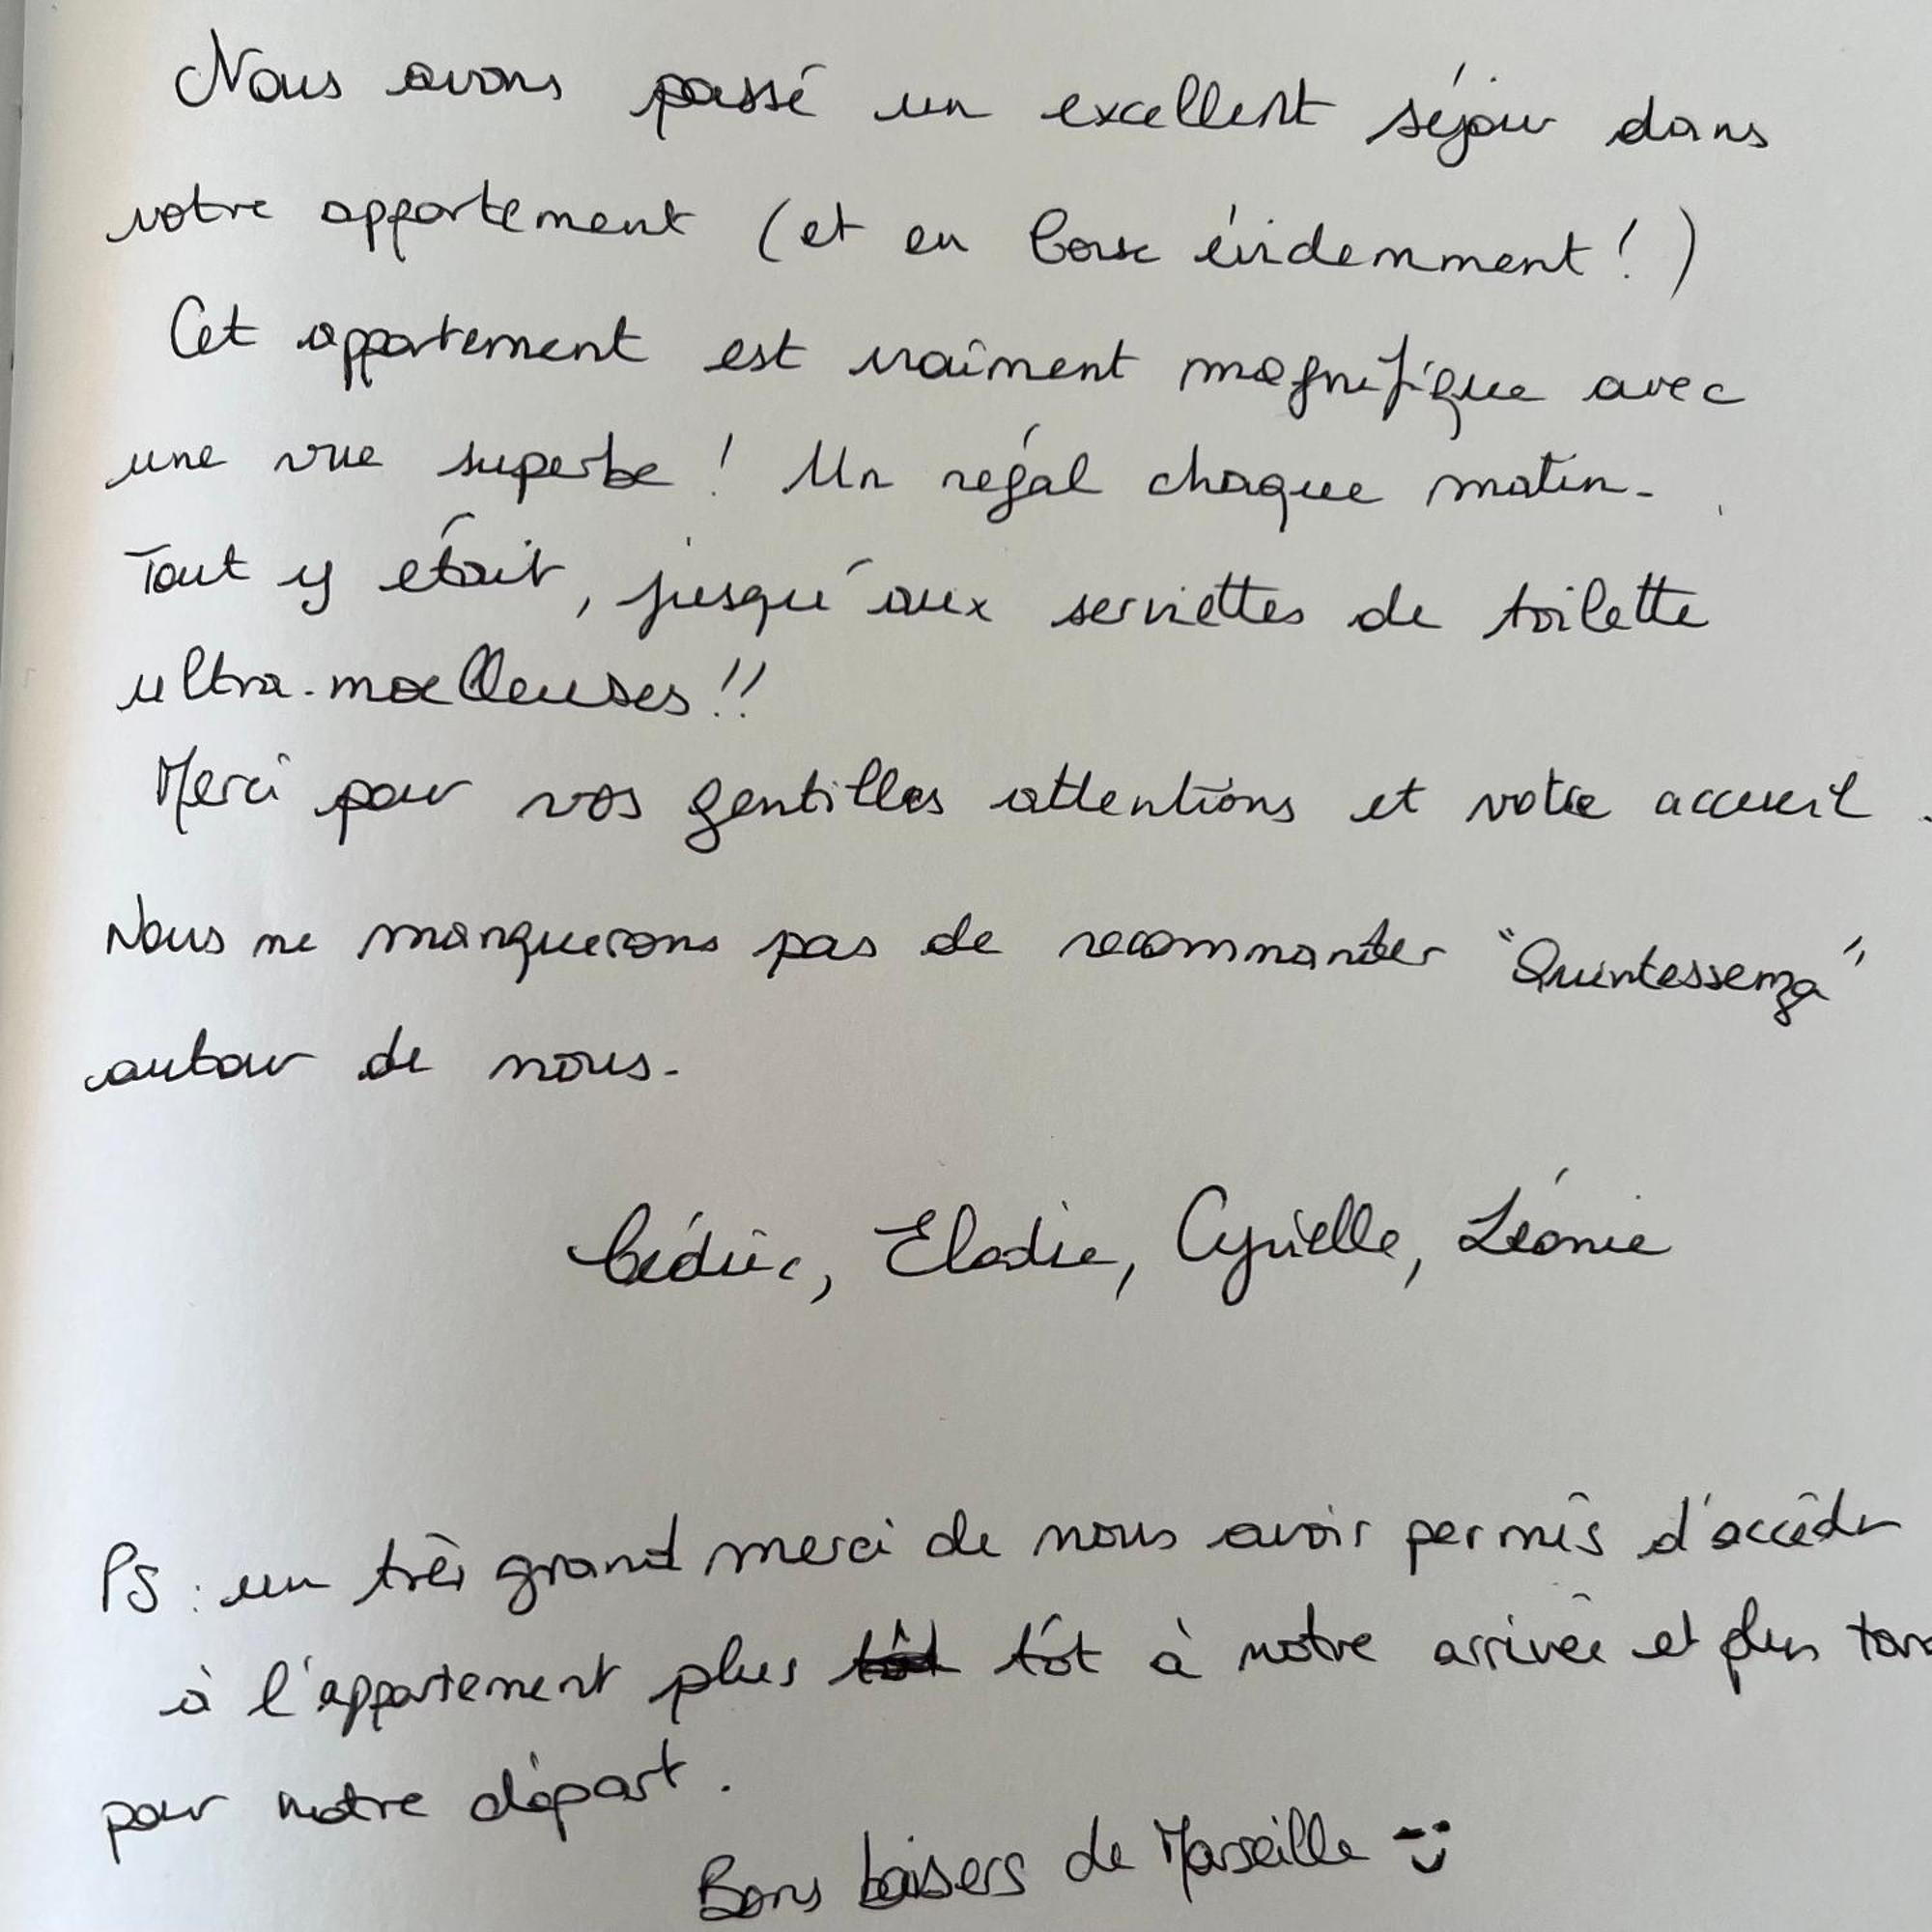 Nous avons passé un excellent séjour dans
votre appartement (et en Corse évidemment !)
Cet appartement est vraiment magnifique avec
une vue superbe ! Un régal chaque matin.
Tout y était, jusqu'aux serviettes de toilette
ultra-moelleuses !!
Merci pour vos gentilles attentions et votre accueil.
Nous ne manquerons pas de recommander "Quintessenza"
autour de nous.
Cédric, Elodie, Cyrielle, Léonie
PS : un très grand merci de nous avoir permis d'accéder
à l'appartement plus tôt à notre arrivée et plus tard
pour notre départ.
Bons baisers de Marseille